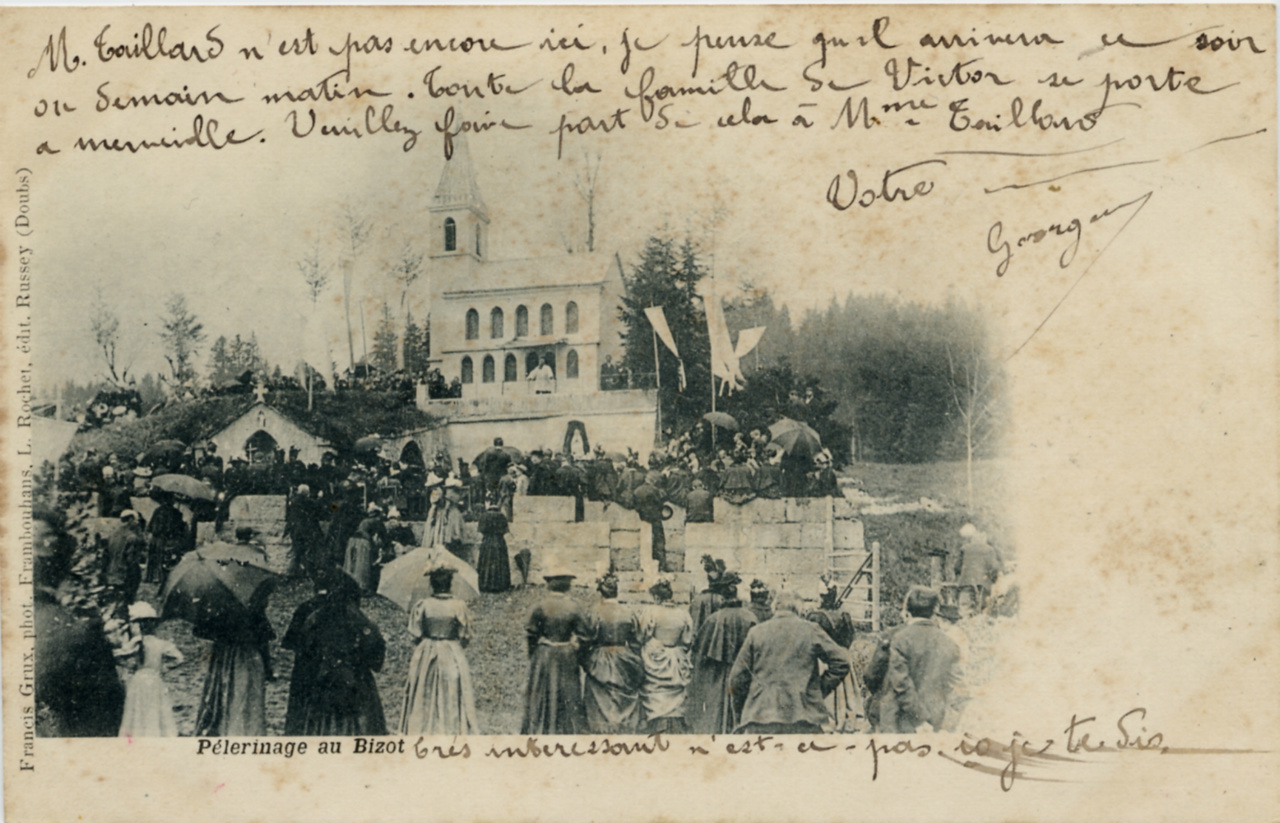 M. Taillard n'est pas encore ici, je pense qu'il arrivera ce soir
ou demain matin. Toute la famille de Victor se porte
a merveille. Veuillez faire part de cela à Mme Taillard
Votre
Georges
Francis Grux, phot. Frambouhans, L. Rochet, édit. Russey (Doubs)
Pélerinage au Bizot
très interessant n'est-ce-pas. je te dis